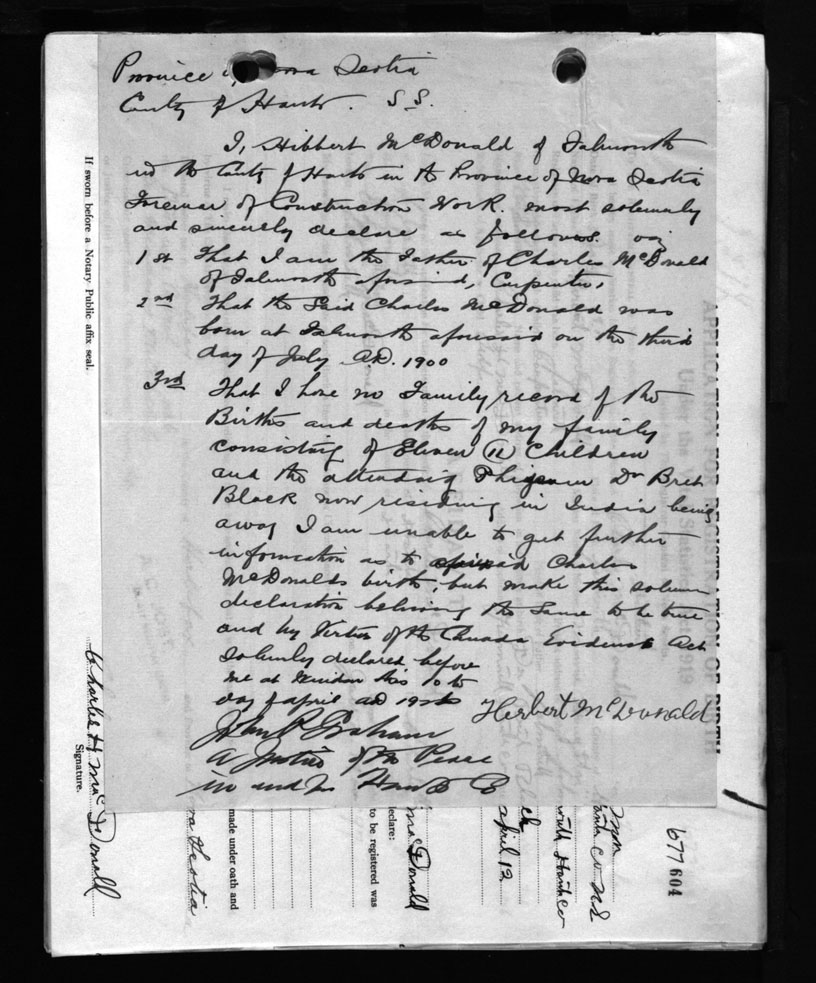 Province of Nova Scotia
County of Hants. S.S.
I, Hibbert McDonald of Falmouth
in the County of Hants in the Province of Nova Scotia
Foreman of Construction Work. most solemnly
and sincerely declare as follows. viz
1st That I am the Father of Charles McDonald
of Falmouth aforsaid, Carpenter,
2nd That the Said Charles McDonald was
born at Falmouth aforesaid on the third
day of July A.D. 1900
3rd That I have no Family record of the
Births and deaths of my family
consisting of Eleven (11) Children
and the attending Dr Bret
Black now residing in India being
away I am unable to get further
information as to aforesaid Charles
McDonalds birth, but make this solemn
declaration believing the Same to be true
and by Virtue of the Canada Evidence Act
Solemnly declared before
me at Windsor this 10th
day of April AD
Herbert McDonald
John R Graham
A Justice of the Peace
in and for Hants Co
If sworn before a Notary Public affix seal.
Charles H MacDonald
Signature.
made under oath and
Nova Scotia
to be registered was
declare:
MacDonald
April 12
Hants Co
Hants Co NS
677604
APPLICATION FOR REGISTRATION OF BIRTH
1919